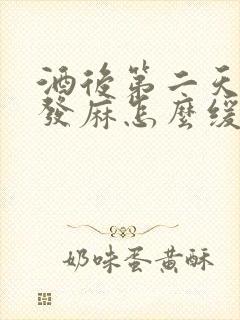 酒後第二天
發麻怎麼緩
奶味蛋黃酥